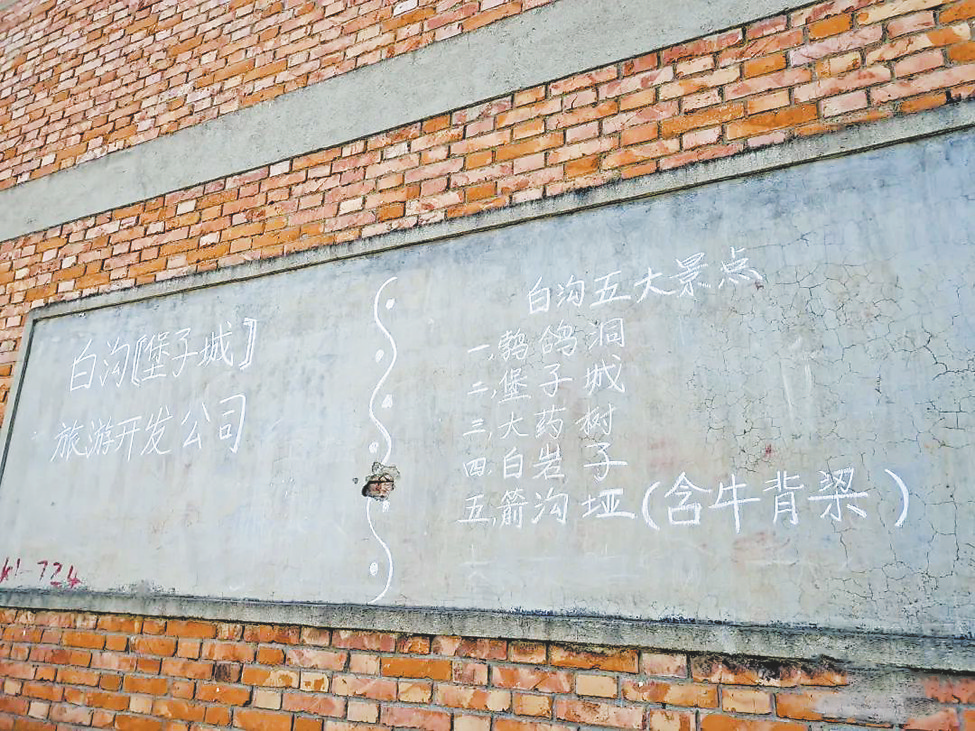 白沟〖堡子城〗
旅游开发公司
白沟五大景点
一,鹁鸽洞
二,堡子城
三,大药树
四,白岩子
五,箭沟垭(含牛背梁)